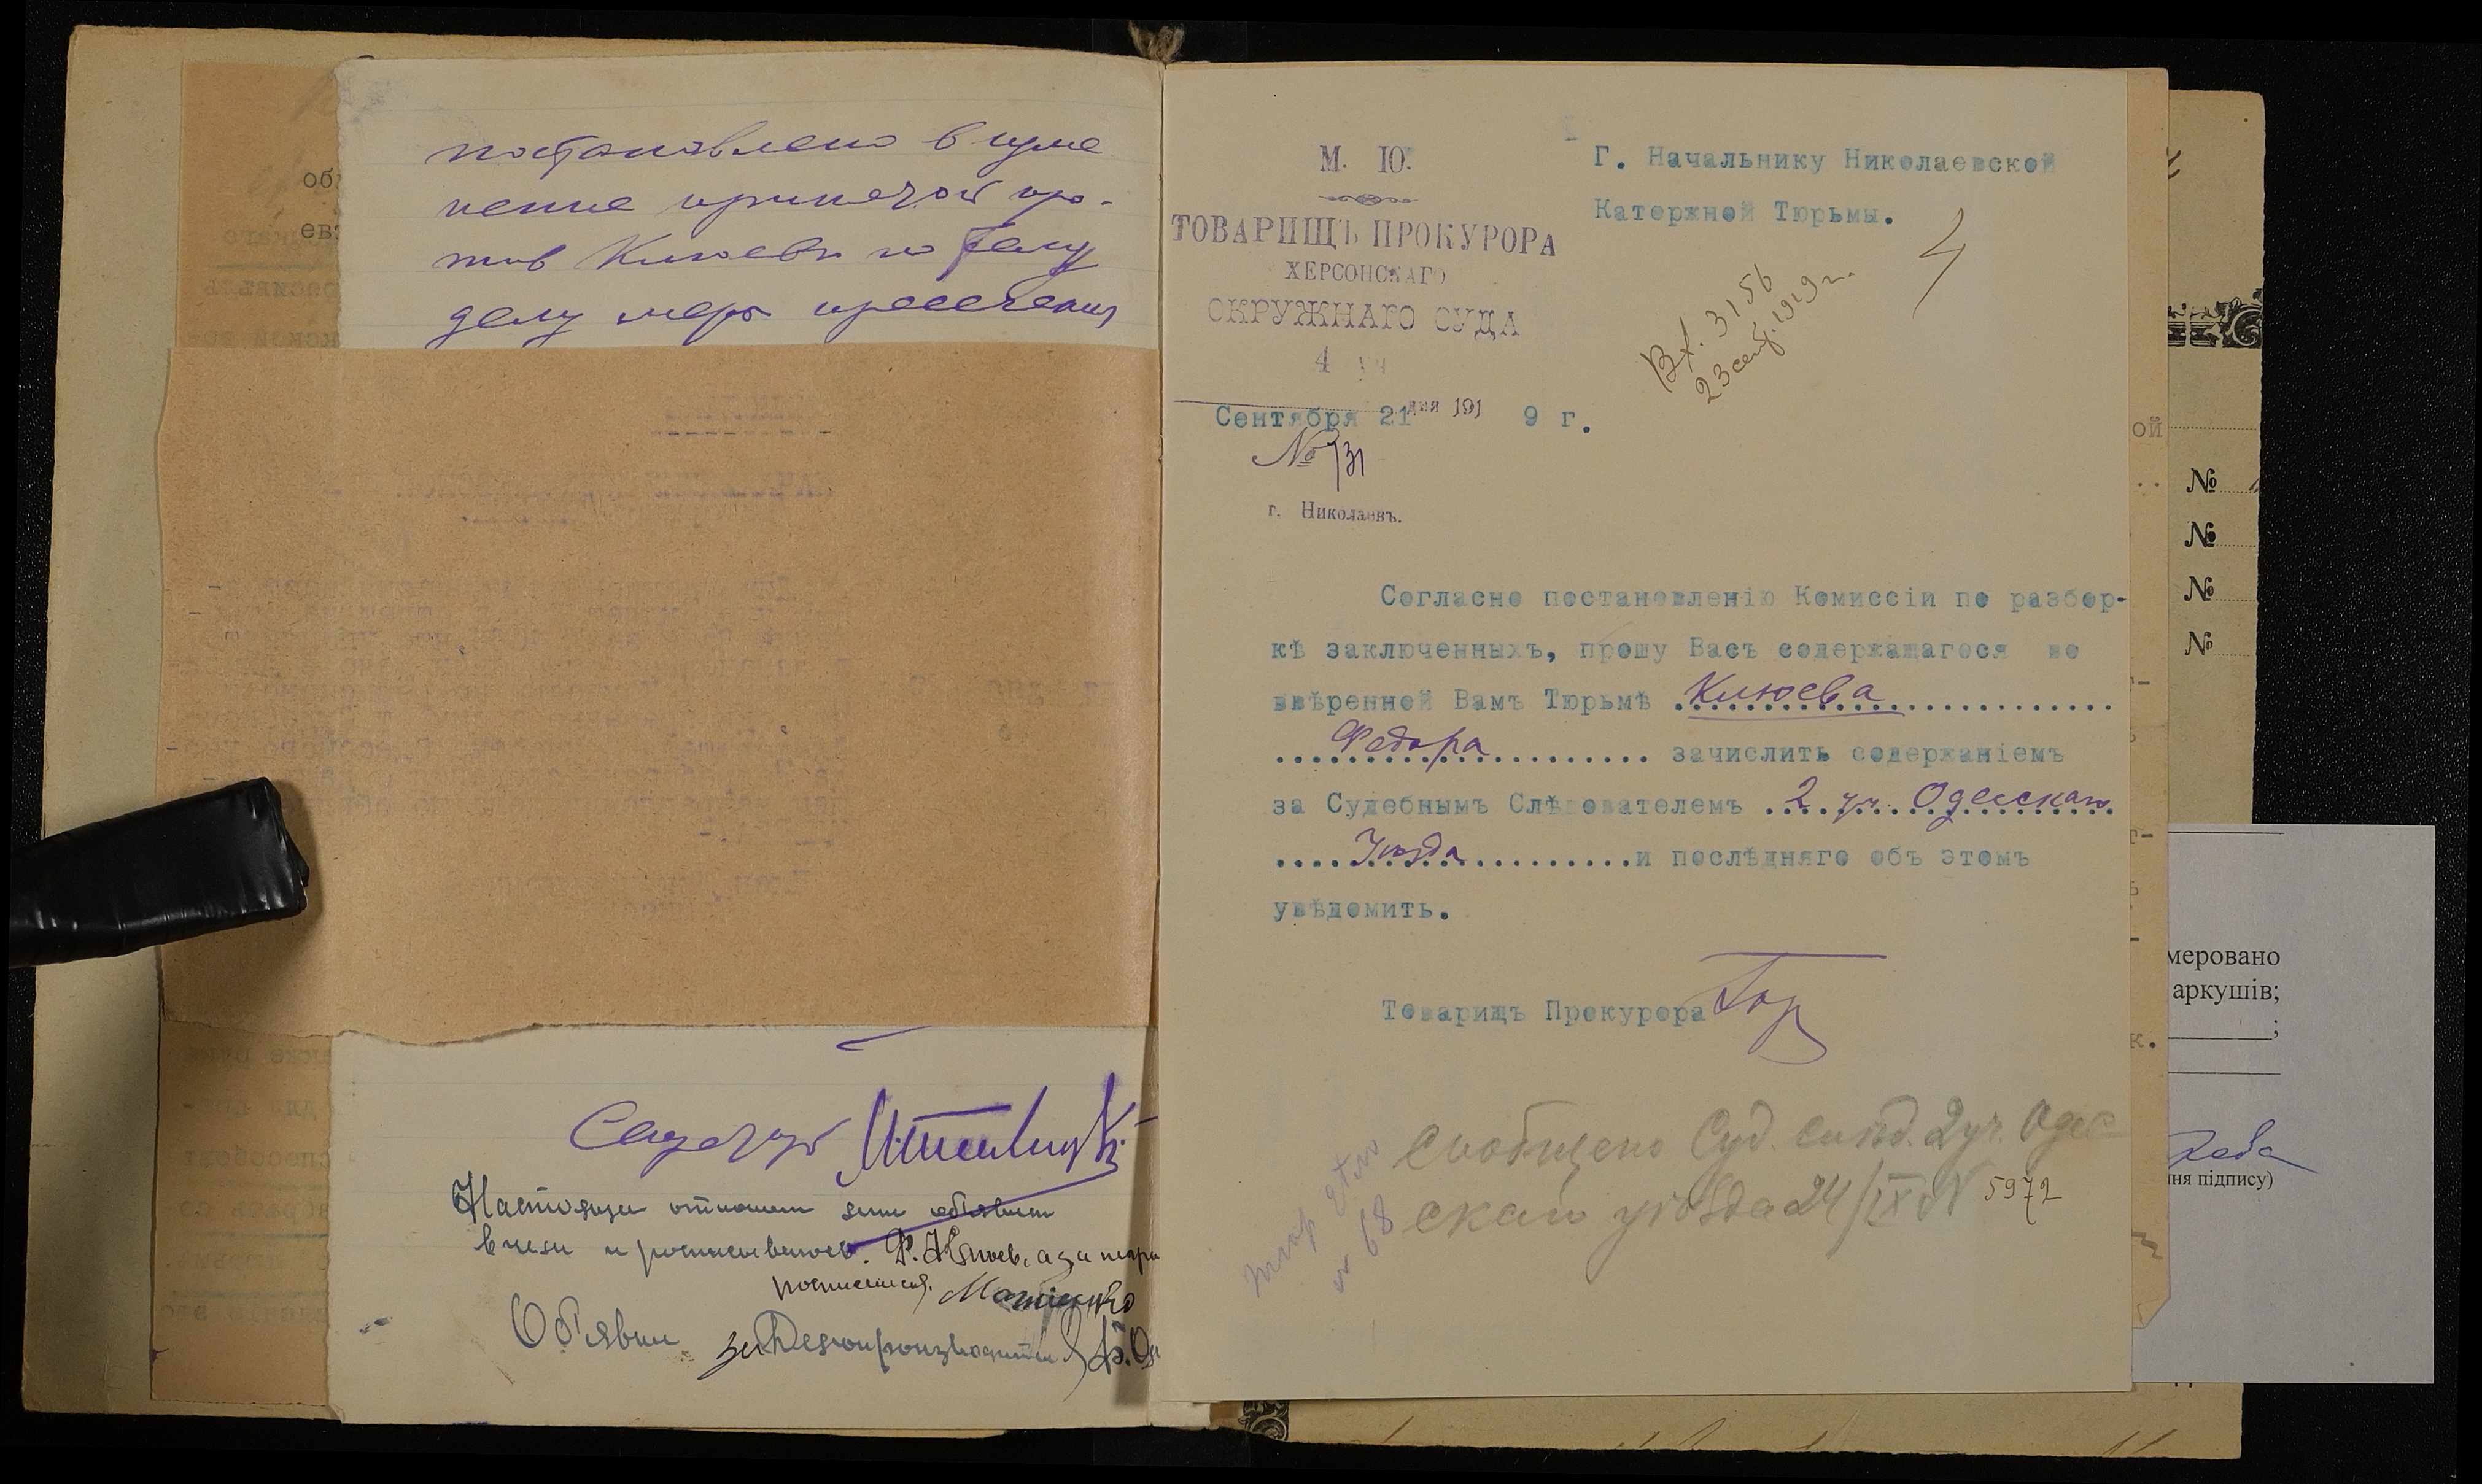 постановлено в изме
нение принятой про-
тив Клюева по
делу меры пресечения
об
ев
Настоящее отношение мне объявлено
Ф. Клюев, а за
расписался.
Объявил
М. Ю.
ТОВАРИЩЪ ПРОКУРОРА
ХЕРСОНСКАГО
ОКРУЖНАГО СУДА
4 уч
Сентября 21 дня 191 9 г.
№ 731
г. Николаевъ.
Г. Начальнику Николаевской
Каторжной Тюрьмы.
4
Вх. 3156
23 сент. 1919 г.
Согласно постановленію Комиссіи по разбор-
кѣ заключенныхъ, прошу Васъ содержащагося во
ввѣренной Вамъ Тюрьмѣ Клюева
Федора зачислить содержаніемъ
за Судебнымъ Слѣдователемъ 2 уч. Одесскаго
Уѣзда и послѣдняго объ этомъ
увѣдомить.
Товарищъ Прокурора
Сообщено Суд. Слѣд. 2 уч. Одес
скаго уѣзда 24/IX № 5972
68
ой
к.
№
№
№
№
меровано
аркушів;
;
ня підпису)